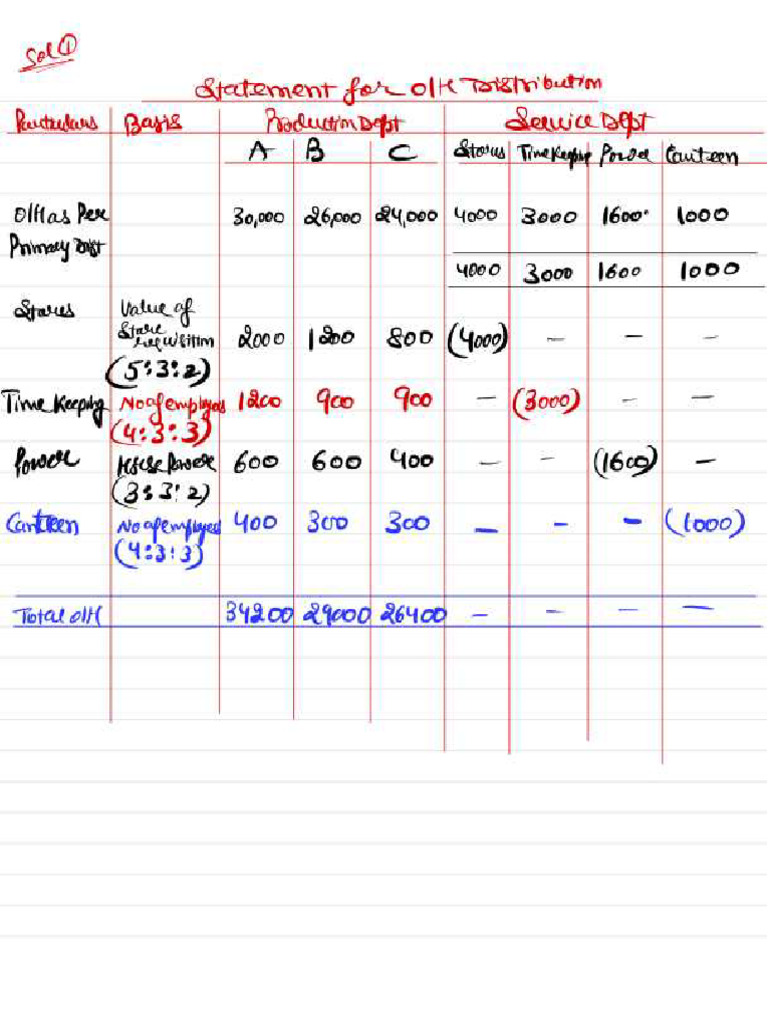 Sol ①
Statement for O/H Distribution
Particulars Basis Production Dept Service Dept
A B C Stores Time Keeping Power Canteen
O/H as Per 30,000 26,000 24,000 4000 3000 1600 1000
Primary Dist
4000 3000 1600 1000
Stores Value of
Store
requisition 2000 1200 800 (4000) - - -
(5:3:2)
Time Keeping No of employees 1200 900 900 - (3000) - -
(4:3:3)
Power Horse Power 600 600 400 - - (1600) -
(3:3:2)
Canteen No of employees 400 300 300 - - - (1000)
(4:3:3)
Total O/H 34200 29000 26400 - - - -